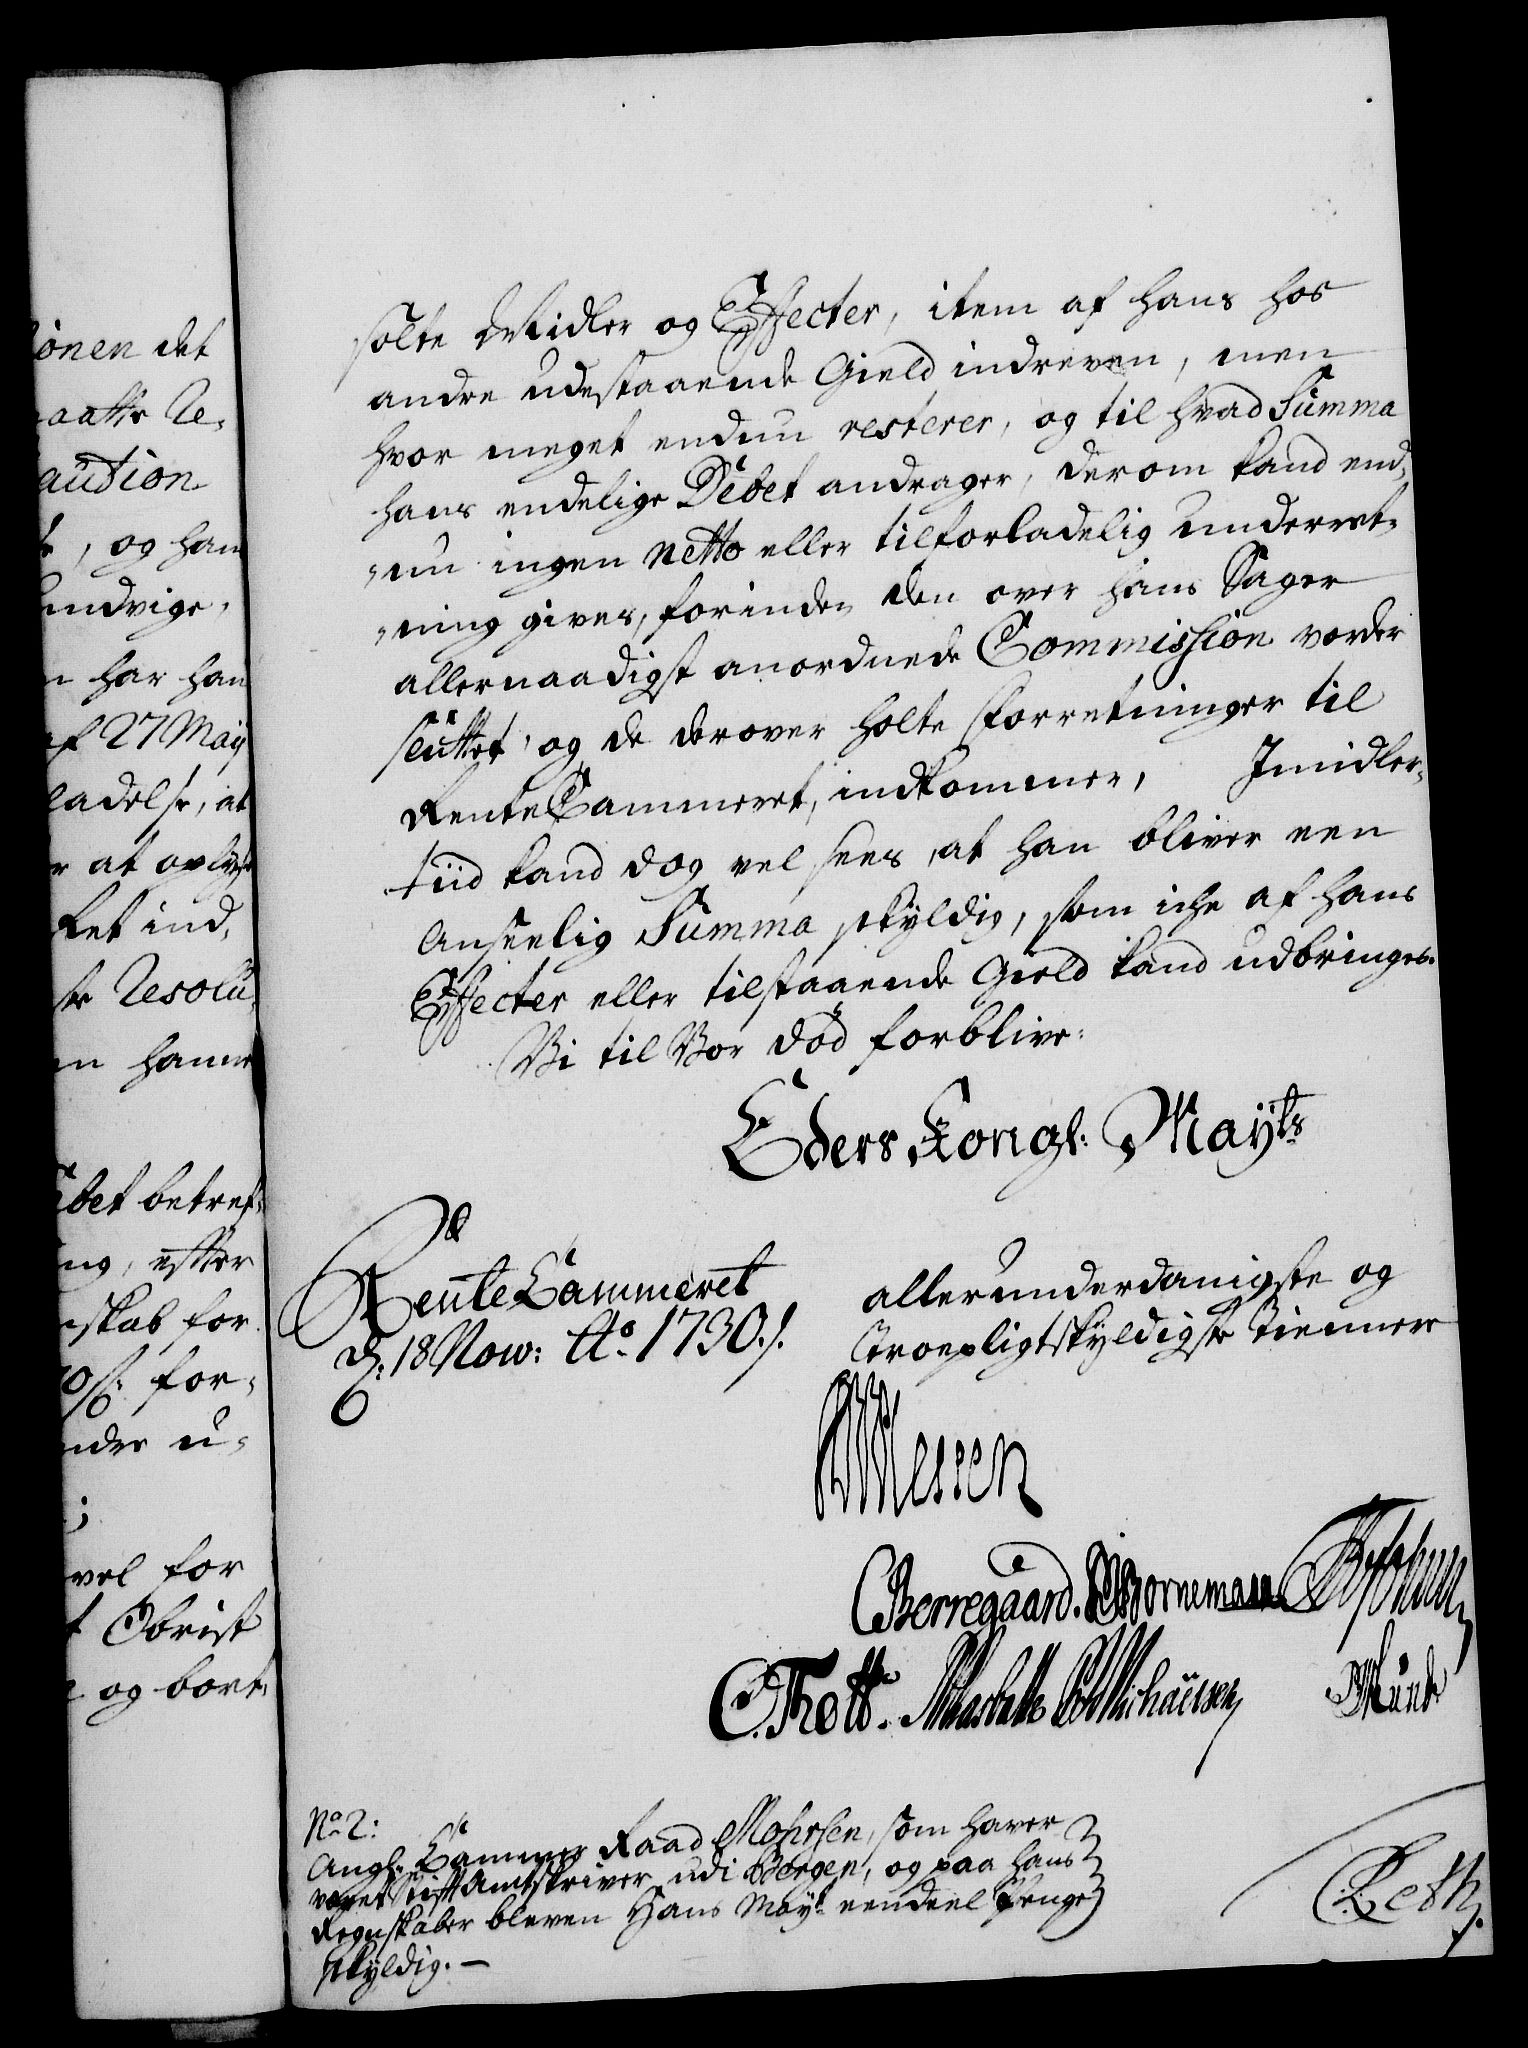 ionen det
aatte Re-
aution
, og han
undvige,
n har han
af 27 Maij
ladelse, at
r at oplyse
ket ind,
ste Resolu-
en hanne
bet betref-
ing, efter
nskab for
for-
nder u-
vel for
t Obrist
og bort-
solte Midler og Effecter, item af hans hos
andre udestaaende Gield indreven, men
hvor meget endnu resterer, og til hvad Summa
hans endelige Debet andrager, derom kand end-
-nu ingen netto eller tilforladelig underret-
-ning gives, forinden den over hans Sager
allernaadigst anordnede Commission vorder
sluttet, og de derover holte Forretninger til
RenteCammeret, indkommer, Imidler-
tiid kand dog vel sees, at han bliver een
Anseelig Summa skyldig, som iche af hans
Effecter eller tilstaaende Gield kand udbringes.
Vi til Vor død forblive:
Eders Kongl: Mayts
RenteCammeret
d: 18 Nov: Ao 1730./.
allerunderdanigste og
Troepligtskyldigste Tiennere
Wessen
CBerregaard. Bornemann
C. Thott. Michaelsen Munk
No 2:
Angl. Cammer Raad Mohrsen, som haver
været StiftAmtskriver udi Bergen, og paa hans
Regnskaber bleven Hans Mayt eendeel Penge
skyldig. —